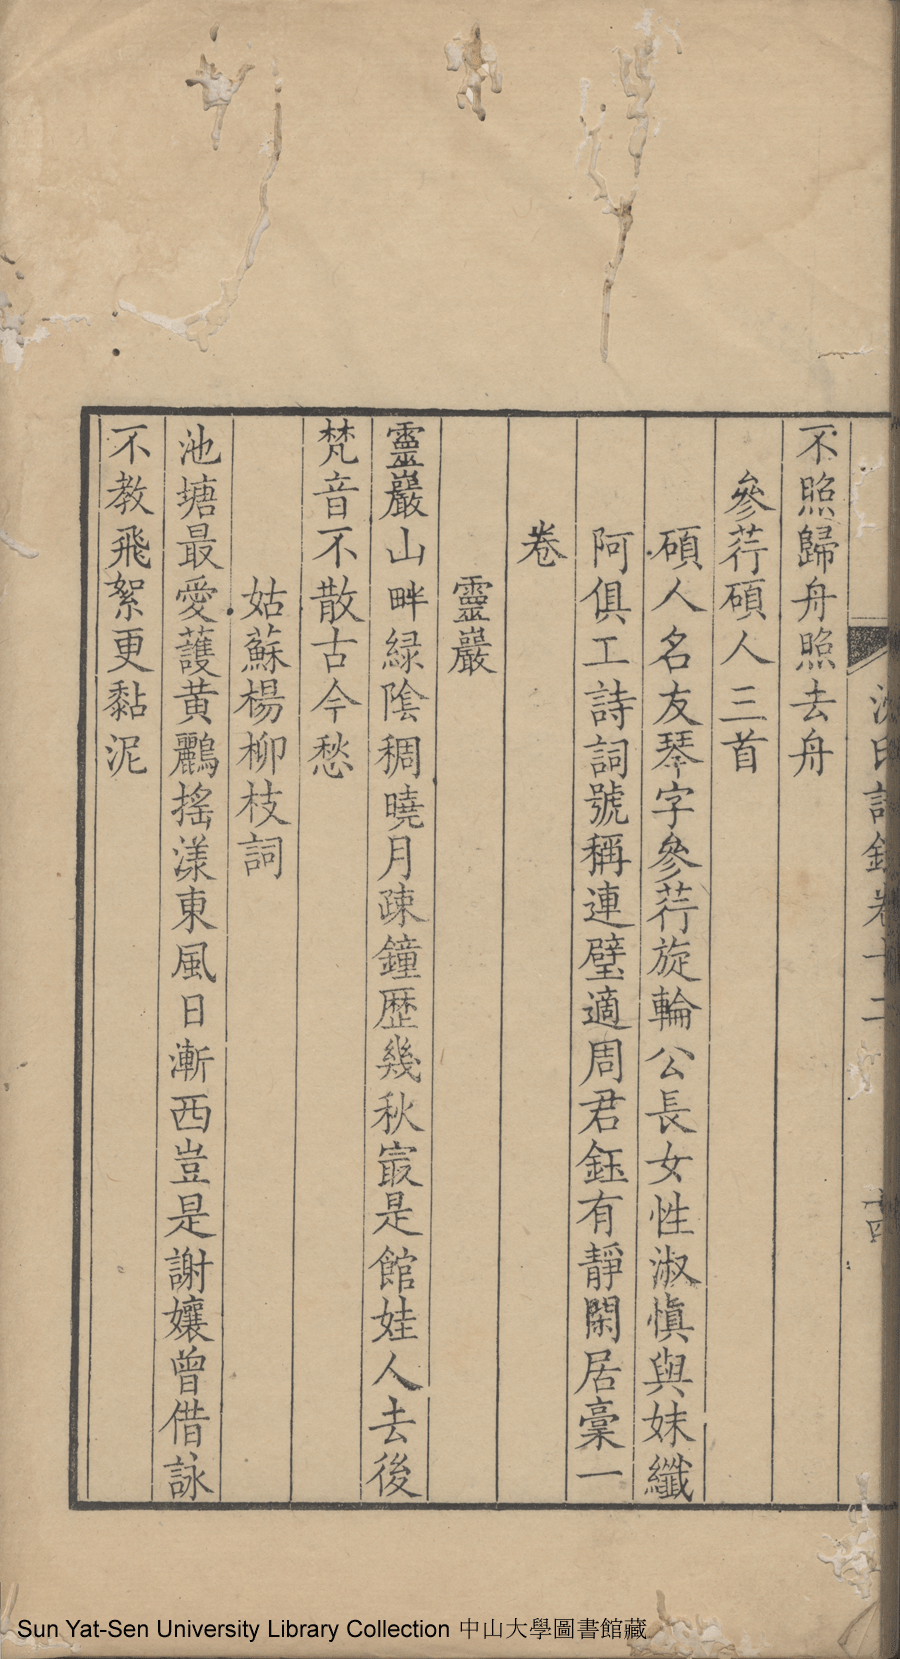 沈氏詩錄卷十二
十四
不照歸舟照去舟
參荇碩人三首
碩人名友琴字參荇旋輪公長女性淑慎與妹纖
阿俱工詩詞號稱連璧適周君鈺有靜閑居稾一
卷
靈巖
靈巖山畔綠陰稠曉月疎鐘歴幾秋㝡是館娃人去後
梵音不散古今愁
姑蘇楊柳枝詞
池塘最愛護黃鸝搖漾東風日漸西豈是謝孃曾借詠
不教飛絮更黏泥
Sun Yat-Sen University Library Collection 中山大學圖書館藏